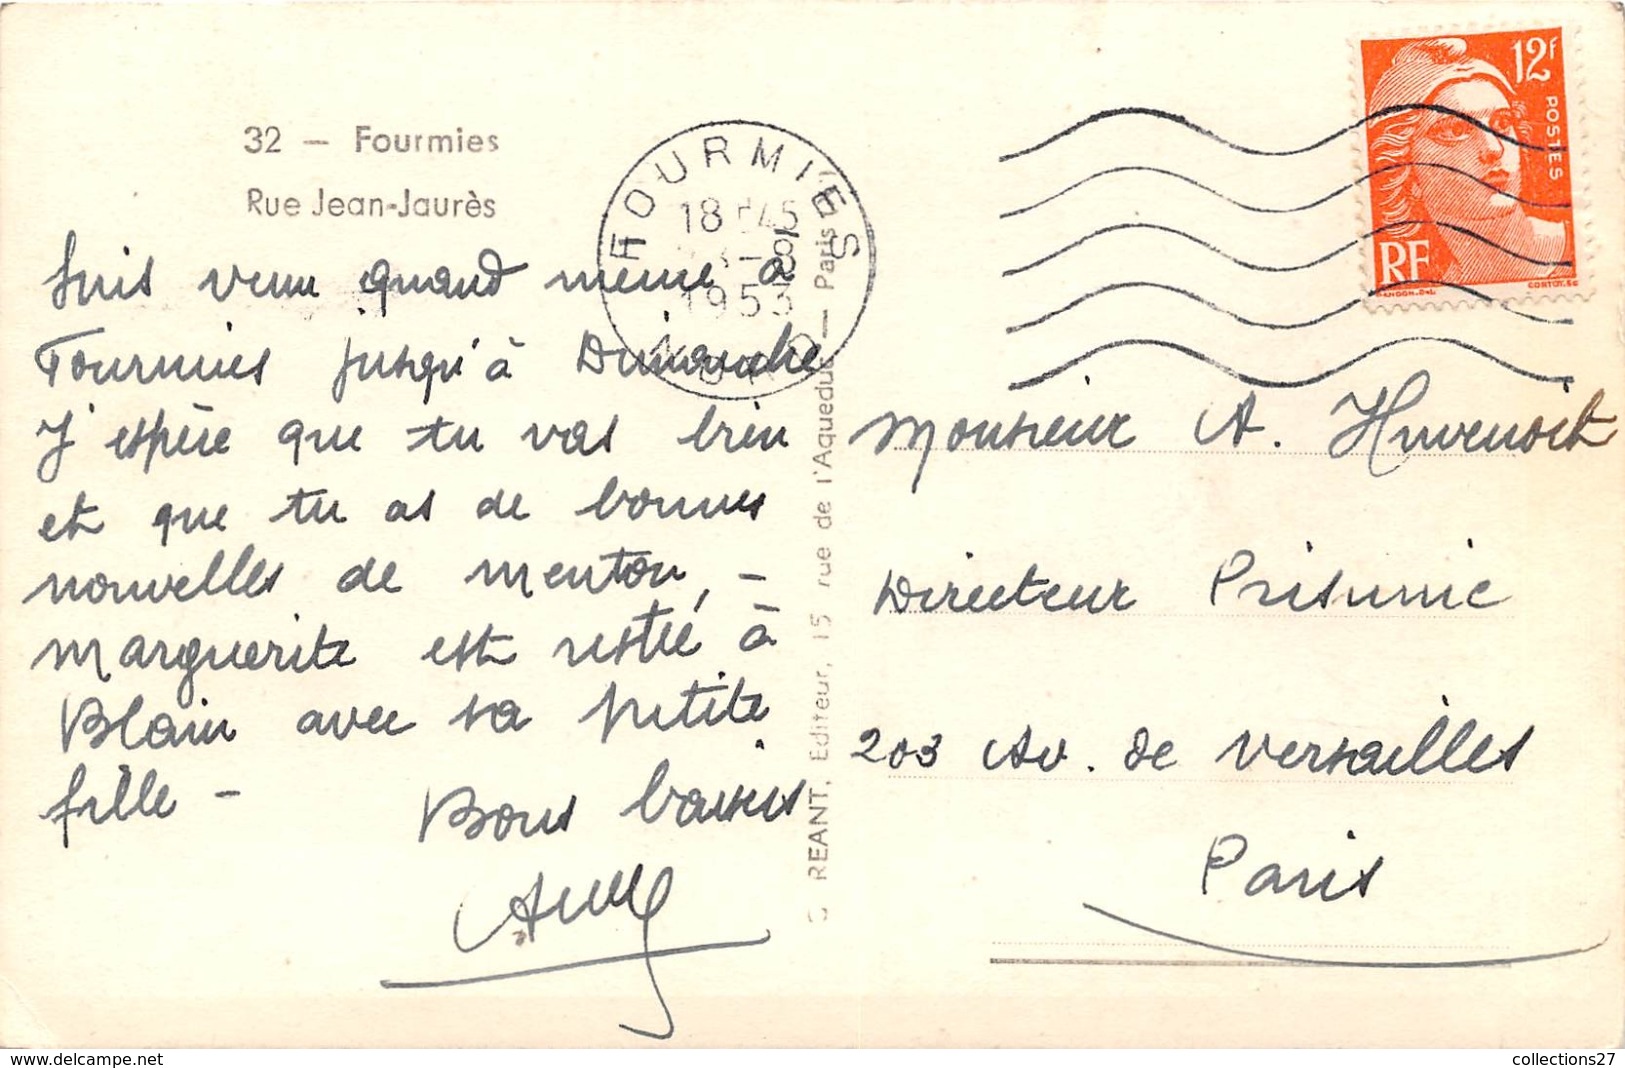 32 — Fourmies
Rue Jean-Jaurès
Suis venu quand même à
Fourmies jusqu'à Dimanche
J'espère que tu vas bien
et que tu as de bonnes
nouvelles de Menton, -
Marguerite est restée à
Blain avec sa petite
fille -
Bons baisers
FOURMIES
18 H 45
-8
1953
NORD
REANT, Editeur, 15 rue de l'Aqueduc — Paris
12F
POSTES
RF
GANDON.DEL.
CORTOT.SC
Monsieur A.
Directeur Prisunic
203 Av. de Versailles
Paris
www.delcampe.net
collections27